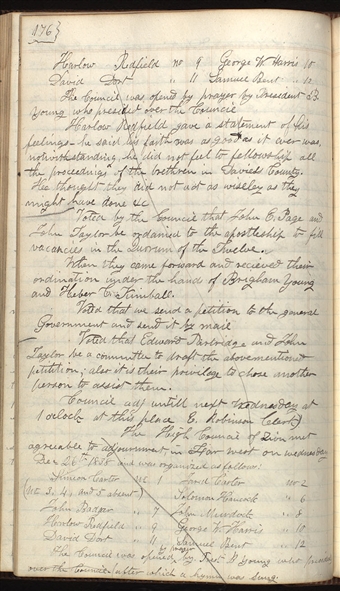 176}
Harlow Redfield no 9 George W. Harris 10
David Dort " 11 Samuel Bent " 12
The Council was opened by prayer by President B.
Young who presided over the Council
Harlow Redfield gave a statement of his
feelings— he said his faith was as good as it ever was,
notwithstanding he did not feel to fellowship all
the proceedings of the brethren in Daviess County.
He thought they did not act as wiseley as they
might have done &c
Voted by the Council that John E. Page and
John Taylor be ordained to the apostleship to fill
vacancies in the quorum of the Twelve.
When they came forward and recieved their
ordination under the hand of Brigham Young
and Heber C. Kimball.
Voted that we send a petition to the general
Government and send it by mail
Voted that Edward Partridge and John
Taylor be a committe to draft the abovementioned
petition; also it is their privilege to chose another
person to assist them.
Council adj untill next wednesday at
1 oclock at this place E. Robinson Clerk}
The High Council of Zion met
agreeable to adjournment in Far West on wednesday
Dec 26th 1838 and was organized as follows:
Simeon Carter No 1 Jared Carter no 2
(No. 3, 4, and 5 absent) Solomon Hancock " 6
John Badger " 7 John Murdock " 8
Harlow Redfield " 9 George W Harris " 10
David Dort " 11 Samuel Bent " 12
The Council was opened by prayer by Prest. B Young who presided
over the Council, after which a hymn was sung.